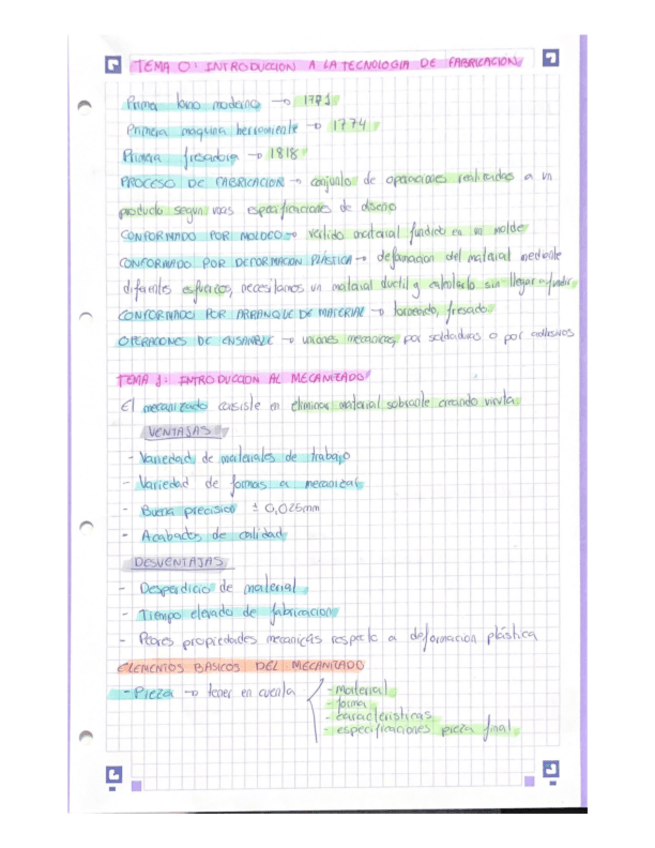 TEMA 0: INTRODUCCION A LA TECNOLOGIA DE FABRICACION
Primer torno moderno → 1791
Primera maquina herramienta → 1774
Primera fresadora → 1818
PROCESO DE FABRICACION → conjunto de operaciones realizadas a un
producto segun unas especificaciones de diseño
CONFORMADO POR MOLDEO → vertido material fundido en un molde
CONFORMADO POR DEFORMACION PLÁSTICA → deformacion del material mediante
diferentes esfuerzos, necesitamos un material ductil y calentarlo sin llegar a fundir
CONFORMADO POR ARRANQUE DE MATERIAL → torneado, fresado
OPERACIONES DE ENSAMBLE → uniones mecanicas, por soldaduras o por adhesivos
TEMA 1: INTRODUCCION AL MECANIZADO
El mecanizado consiste en eliminar material sobrante creando viruta
VENTAJAS
- Variedad de materiales de trabajo
- Variedad de formas a mecanizar
- Buena precision ± 0,025mm
- Acabados de calidad
DESVENTAJAS
- Desperdicio de material
- Tiempo elevado de fabricacion
- Peores propiedades mecanicas respecto a deformacion plástica
ELEMENTOS BASICOS DEL MECANIZADO
- Pieza → tener en cuenta
- material
- forma
- caracteristicas
- especificaciones pieza final